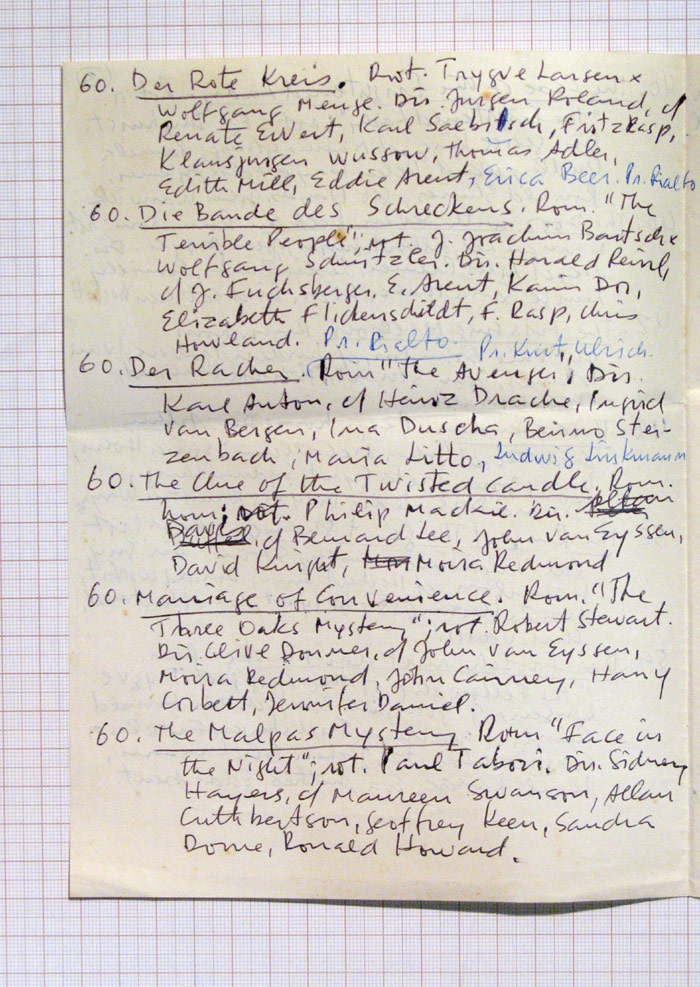 60. Der Rote Kreis. Rot. Trygve Larsen x
Wolfgang Menge. Dir. Jurgen Roland, cf
Renate Ewert, Karl Saebitsch, Fritz Rasp,
Klausjurgen Wussow, Thomas Adler,
Edith Mill, Eddie Arent, Erica Beer. Pr. Rialto
60. Die Bande des Schreckens. Rom. "The
Terrible People"; rot. J. Joachim Bartsch x
Wolfgang Schnitzler. Dir. Harald Reinl,
cf J. Fuchsberger, E. Arent, Karin Dor,
Elizabeth Flickenschildt, F. Rasp, Chris
Howland. Pr. Rialto.
Pr. Kurt Ulrich.
60. Der Racher. Rom "The Avenger; Dir.
Karl Anton. cf Heinz Drache, Ingrid
van Bergen, Ina Duscha, Benno Ster-
zenbach, Maria Litto, Ludwig Linkmann
60. The Clue of the Twisted Candle. Rom.
hom; rot. Philip Mackie. Dir.
cf Bernard Lee, John Van Eyssen,
David Knight, Moira Redmond
60. Marriage of Convenience. Rom. "The
Three Oaks Mystery"; rot. Robert Stewart.
Dir. Clive Donner, cf John Van Eyssen,
Moira Redmond, John Cairney, Harry
Corbett, Jennifer Daniel.
60. The Malpas Mystery Rom "Face in
the Night"; rot. Paul Tabori. Dir. Sidney
Hayers, cf Maureen Swanson, Allan
Cuthbertson, Geoffrey Keen, Sandra
Dorne, Ronald Howard.